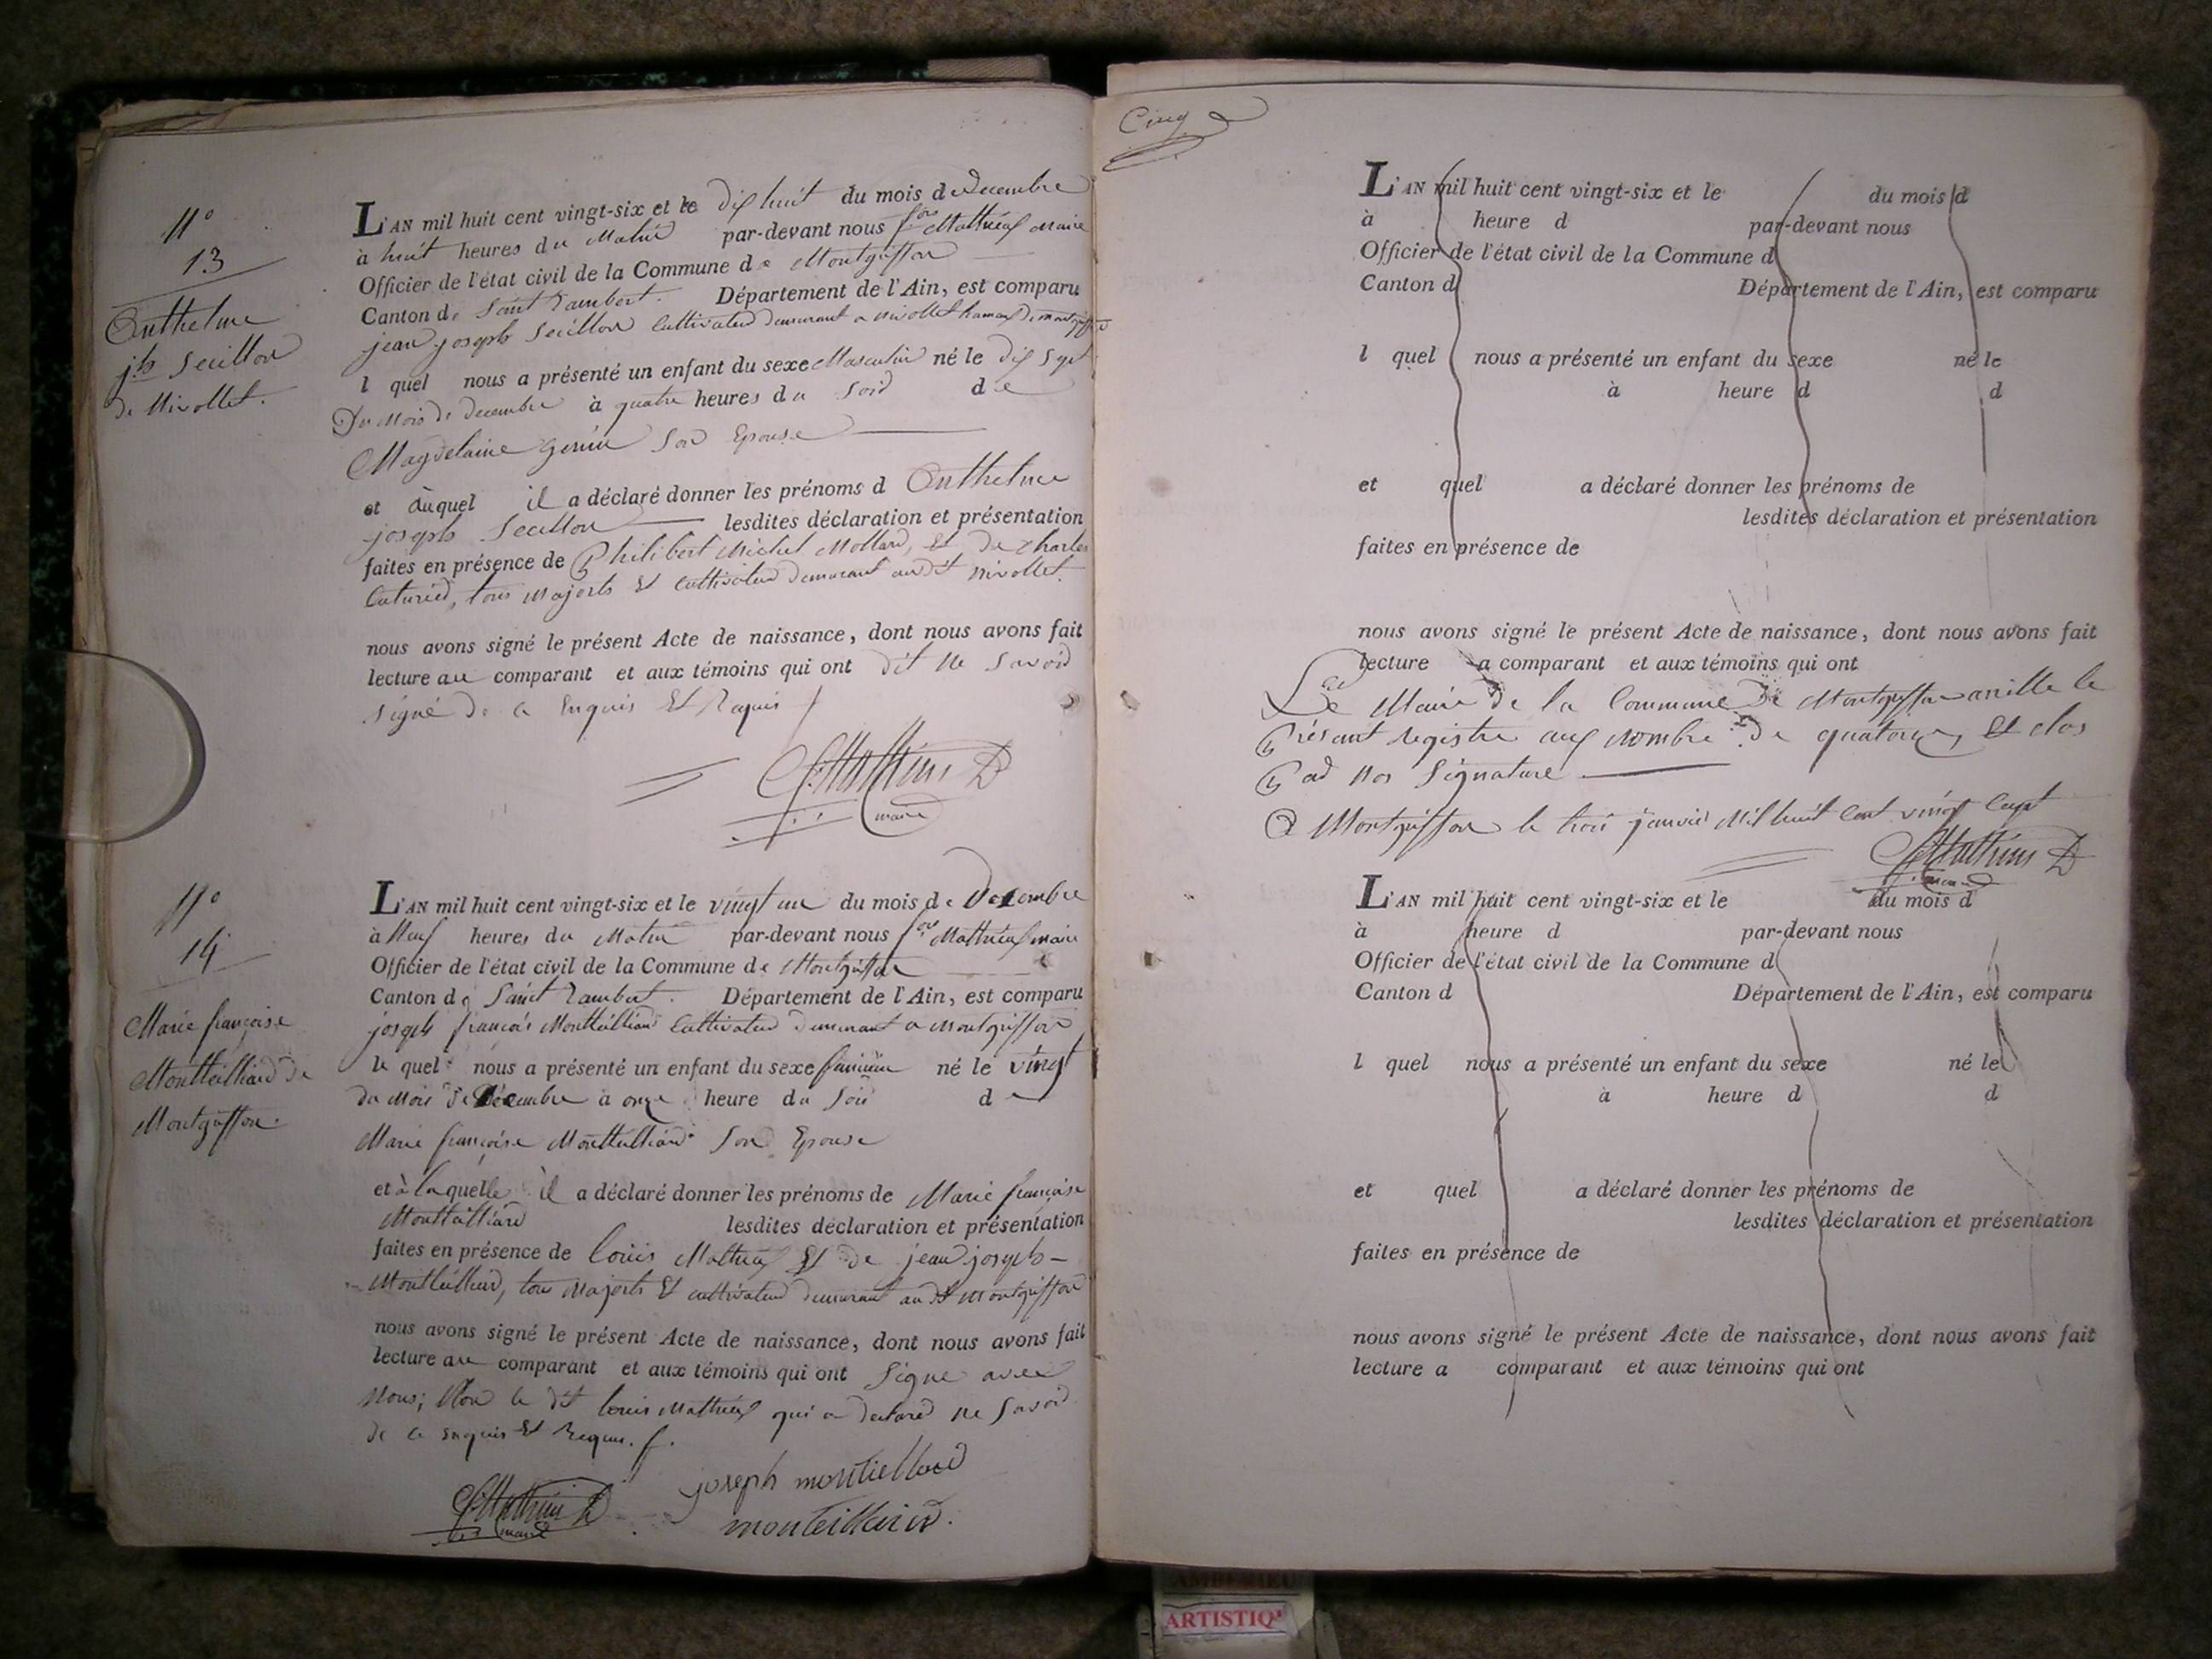 N.o
13
Anthelme
j.h Secillon
de Nivollet.
L'AN mil huit cent vingt-six et le dix huit du mois de Decembre
à huit heures du Matin par-devant nous f.ois Mathieux Maire
Officier de l'état civil de la Commune de Montgriffon
Canton de Saint Rambert. Département de l'Ain, est comparu
jean joseph Secillon Cultivateur demeurant a nivollet hameau de montgriffon
l quel nous a présenté un enfant du sexe Masculin né le dix sept
Du Mois de decembre à quatre heures du Soir de
Magdelaine genin Son Epouse
et auquel il a déclaré donner les prénoms d Anthelme
joseph Secillon lesdites déclaration et présentation
faites en présence de Philibert Michel Mollard, et de charles
tous Majorts Et Cultivateur demeurant audit nivollet.
nous avons signé le présent Acte de naissance, dont nous avons fait
lecture au comparant et aux témoins qui ont dit ne Savoir
signé de ce Enquis Et Requis
f. Mathieux
maire
N.o
14
Marie françoise
Monteilliard de
Montgriffon.
L'AN mil huit cent vingt-six et le vingt un du mois de Decembre
à Neuf heures du Matin par-devant nous f.ois Mathieux maire
Officier de l'état civil de la Commune de Montgriffon
Canton de Saint Rambert. Département de l'Ain, est comparu
joseph françois Monteilliard Cultivateur demeurant a Montgriffon
le quel nous a présenté un enfant du sexe feminin né le vingt
du Mois de Décembre à onze heure du Soir de
Marie françoise Monteilliard Son Epouse
et à laquelle il a déclaré donner les prénoms de Marie françoise
Monteilliard lesdites déclaration et présentation
faites en présence de Louis Mathieux Et de jean joseph
Monteilliard, tous Majorts Et cultivateur demeurant audit Montgriffon
nous avons signé le présent Acte de naissance, dont nous avons fait
lecture au comparant et aux témoins qui ont Signe avec
Nous; Non le dit louis Mathieux qui a declaré ne Savoir
de ce enquis Et Requis.
f. Mathieux
maire
joseph montiellard
monteillard.
Cinq
L'AN mil huit cent vingt-six et le du mois d
à heure d par-devant nous
Officier de l'état civil de la Commune d
Canton d Département de l'Ain, est comparu
l quel nous a présenté un enfant du sexe né le
à heure d d
et quel a déclaré donner les prénoms de
lesdites déclaration et présentation
faites en présence de
nous avons signé le présent Acte de naissance, dont nous avons fait
lecture a comparant et aux témoins qui ont
Le Maire de la Commune De Montgriffon arrille le
Présent registre aux nombre de quatorze, Et clos
Par Nos Signature
A Montgriffon le trois janvier Mil huit Cent vingt Cept
f. Mathieux
maire
L'AN mil huit cent vingt-six et le du mois d
à heure d par-devant nous
Officier de l'état civil de la Commune d
Canton d Département de l'Ain, est comparu
l quel nous a présenté un enfant du sexe né le
à heure d d
et quel a déclaré donner les prénoms de
lesdites déclaration et présentation
faites en présence de
nous avons signé le présent Acte de naissance, dont nous avons fait
lecture a comparant et aux témoins qui ont
ARTISTIQ